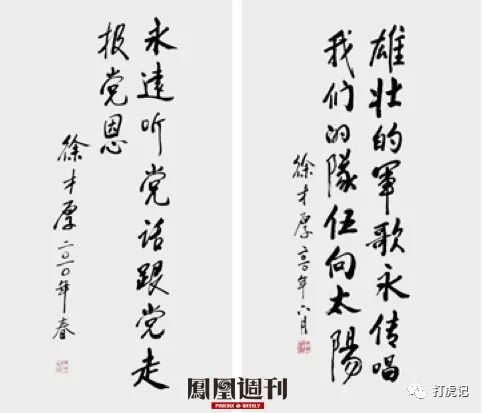 雄壮的军歌永传唱
我们的隊伍向太陽
徐才厚二〇一〇年六月
永遠听党话跟党走
报党恩
徐才厚二〇一〇年春
鳳凰週刊
PHOENIX WEEKLY
打虎记